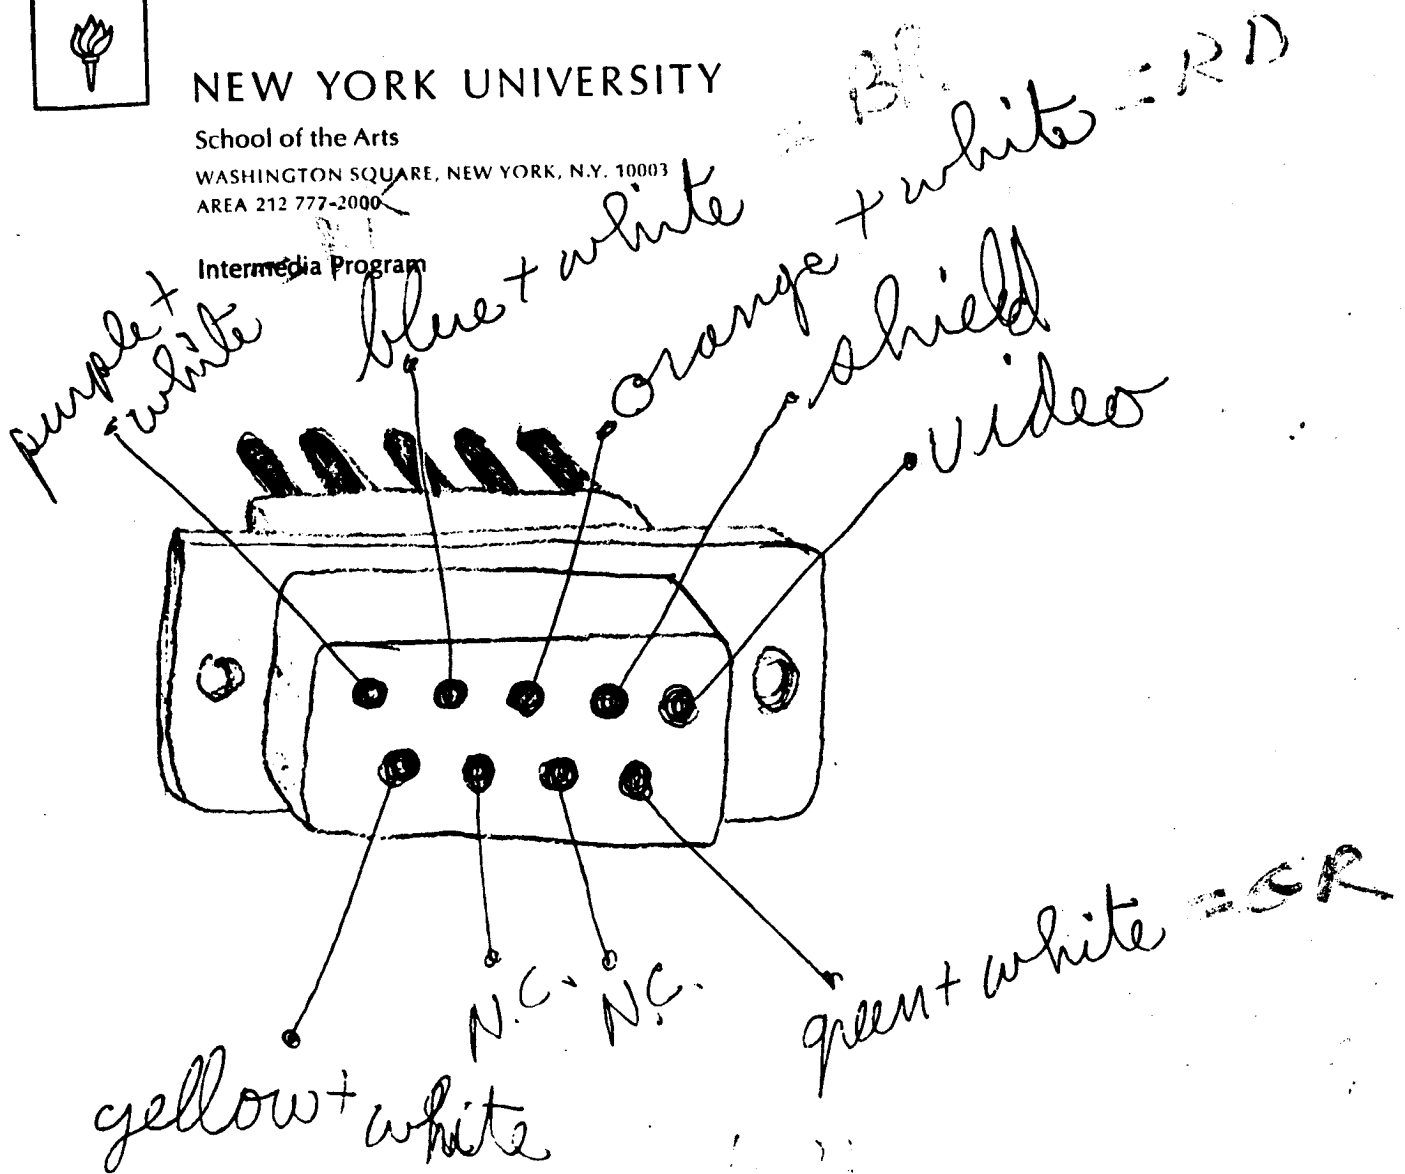 NEW YORK UNIVERSITY
School of the Arts
WASHINGTON SQUARE, NEW YORK, N.Y. 10003
AREA 212 777-2000
Intermedia Program
purple +
white
blue + white = BR
orange + white = RD
shield
video
yellow + white
N.C.
N.C.
green + white = GR